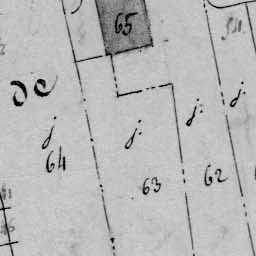 65
de
j.
j.
j.
j.
64
63
62